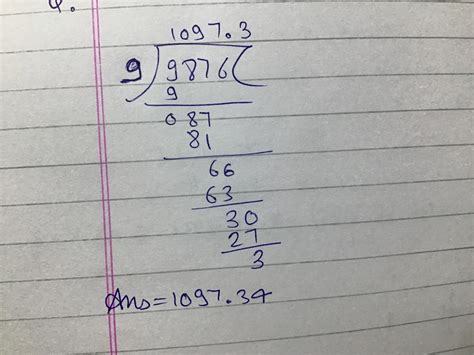 Q.
1097.3
9 9876
9
087
81
66
63
30
27
3
Ans=1097.34